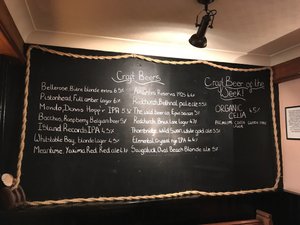 Craft Beers
Bellerose, Bière blonde extra 6.5
Pistonhead, Full amber lager 6%
Mondo, Dennis Hopp'r IPA 5.5%
Bacchus, Raspberry Belgian beer 5%
Island Records IPA 4.5%
Whitstable Bay, blonde lager 4.5%
Meantime, Yakima Red Red ale 4.1%
Reserva 1905 6.4%
Redchurch, Bethnal pale ale 5.5%
The wild beer co, Epic saison 5%
Redchurch, Brick lane lager 4.5%
Thornbridge, wild Swan white gold ale 3.5%
Elemental, Crystal rye IPA 6%
Saugatuck, Oval Beach Blonde ale 5%
Craft Beer of the Week!
ORGANIC 4.5%
CELIA
CZECH